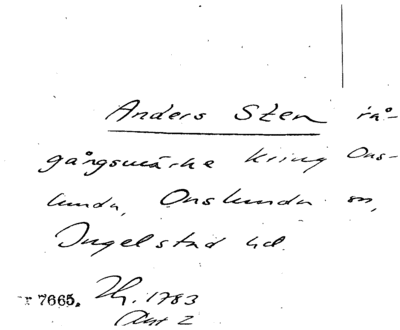 Anders Sten rå-
gångsmärke kring Ons-
lunda, Onslunda sn,
Ingelstad hd.
r 7665. Lh. 1783
Akt 2